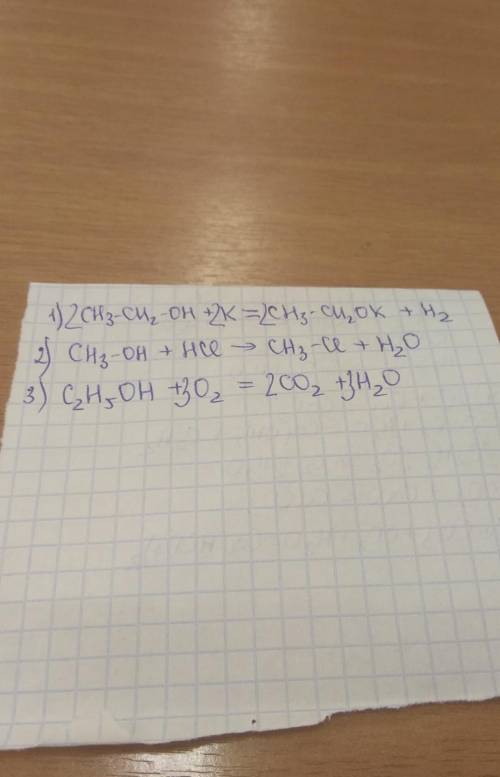 1) 2CH₃-CH₂-OH + 2K = 2CH₃-CH₂OK + H₂
2) CH₃-OH + HCl → CH₃-Cl + H₂O
3) C₂H₅OH + 3O₂ = 2CO₂ + 3H₂O